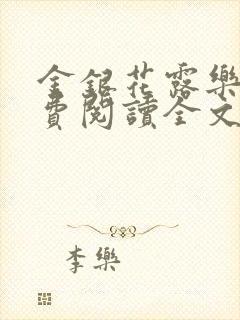 金銀花露樂
費閱讀全文
李樂